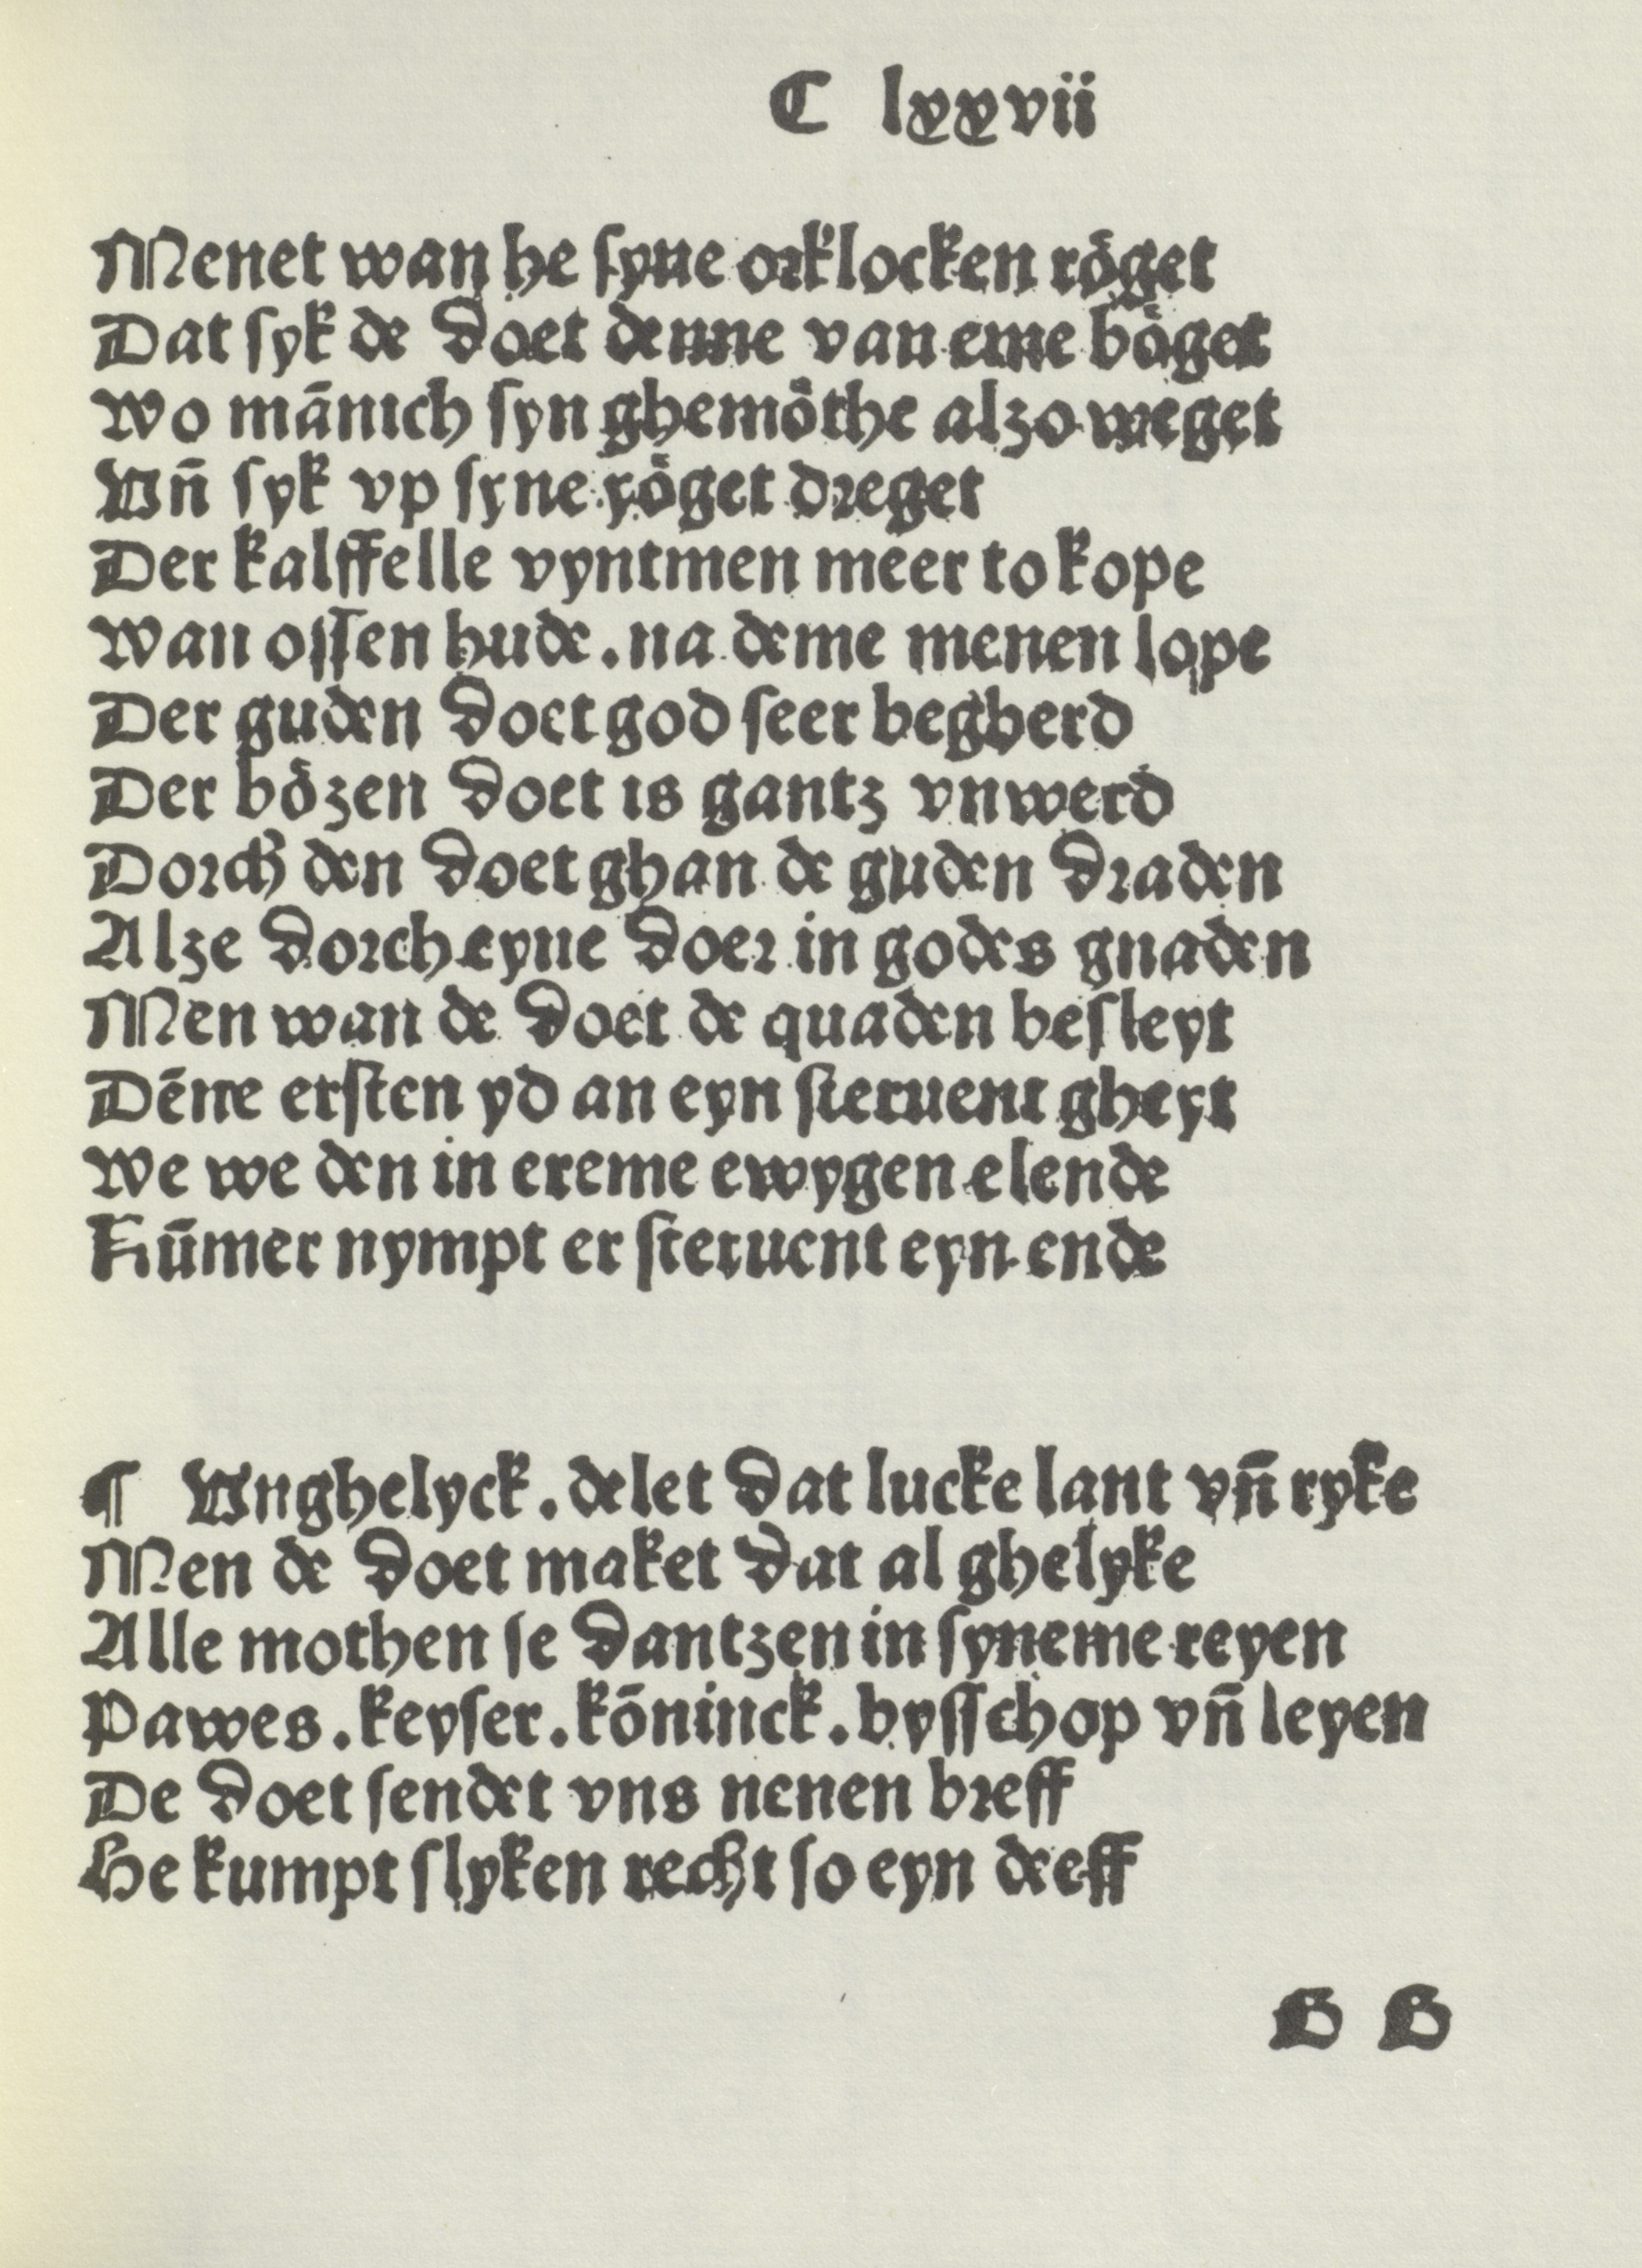 C lxxvii
Menet wan he ſyne orklocken röget
Dat ſyk de doet denne van eme böget
Wo mānich ſyn ghemöthe alzo weget
Vn̄ ſyk vp ſyne yöget dreget
Der kalffelle vyntmen meer to kope
Wan oſſen hude . na deme menen lope
Der guden doet god ſeer begherd
Der bözen doet is gantz vnwerd
Dorch den doet ghan de guden draden
Alze dorch eyne doer in godes gnaden
Men wan de doet de quaden beſleyt
Dēne erſten yd an eyn ſteruent gheyt
We we den in ereme ewygen elende
Kūmer nympt er ſteruent eyn ende
¶ Vnghelyck . delet dat lucke lant vn̄ ryke
Men de doet maket dat al ghelyke
Alle mothen ſe dantzen in ſyneme reyen
Pawes . keyſer . kōninck . byſſchop vn̄ leyen
De doet ſendet vns nenen breff
He kumpt ſlyken recht ſo eyn deeff
B B